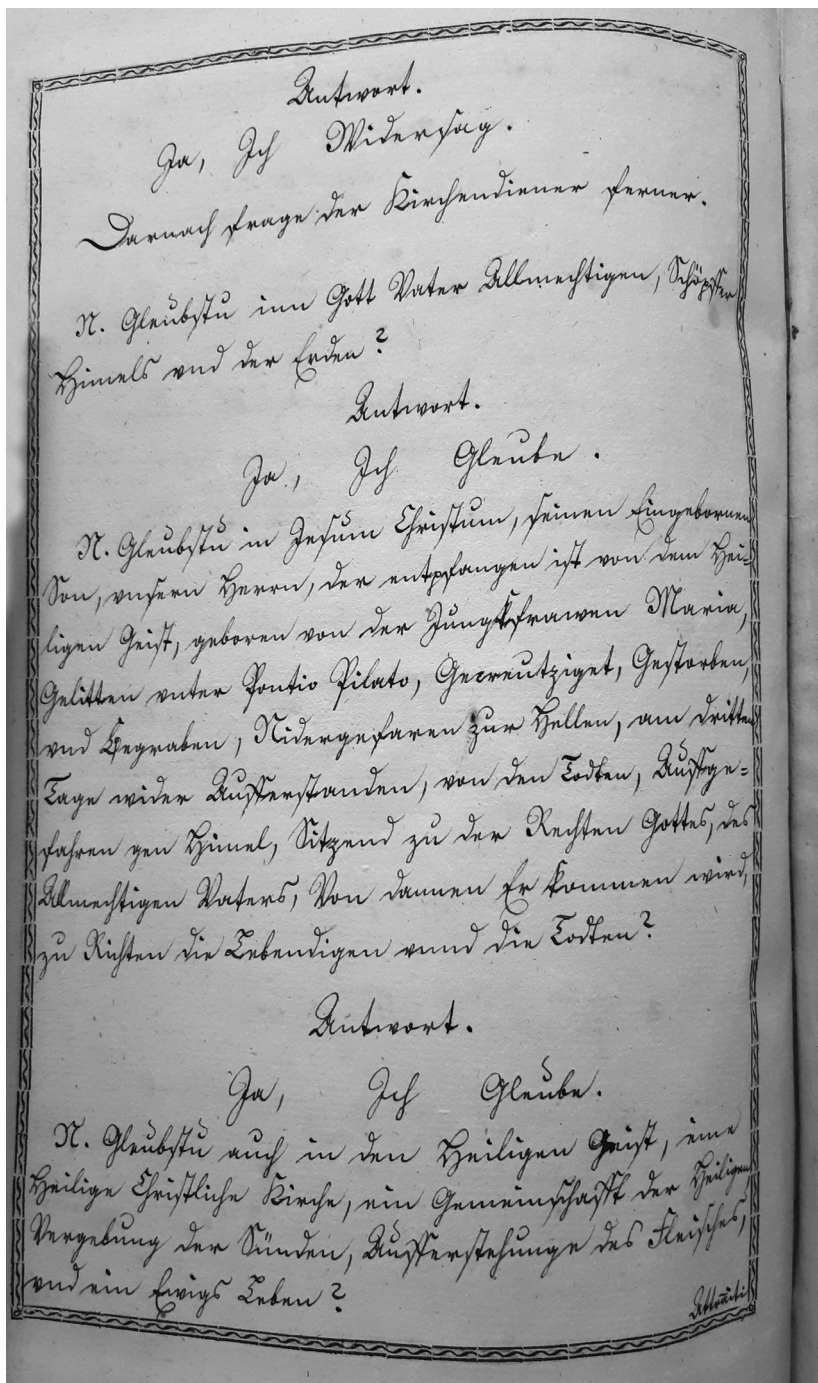 Antwort.
Ja, Ich Widersag.
Darnach frage der Kirchendiener ferner.
N. Gleubstu inn Gott Vater Allmechtigen, Schöpffer
Himels vnd der Erden?
Antwort.
Ja, Ich Gleube.
N. Gleubstu in Jesum Christum, seinen Eingebornen
Son, vnsern Herrn, der entpfangen ist von dem Hei=
ligen Geist, geboren von der Jungkfrawen Maria,
Gelitten vnter Pontio Pilato, Gecreutziget, Gestorben,
vnd Begraben, Nidergefaren zur Hellen, am dritten
Tage wider Aufferstanden, von den Todten, Auffge=
fahren gen Himel, Sitzend zu der Rechten Gottes, des
Allmechtigen Vaters, Von dannen Er kommen wird,
zu Richten die Lebendigen vnnd die Todten?
Antwort.
Ja, Ich Gleube.
N. Gleubstu auch in den Heiligen Geist, eine
Heilige Christliche Kirche, ein Gemeinschafft der Heiligen,
Vergebung der Sünden, Aufferstehunge des Fleisches,
vnd ein Ewigs Leben?